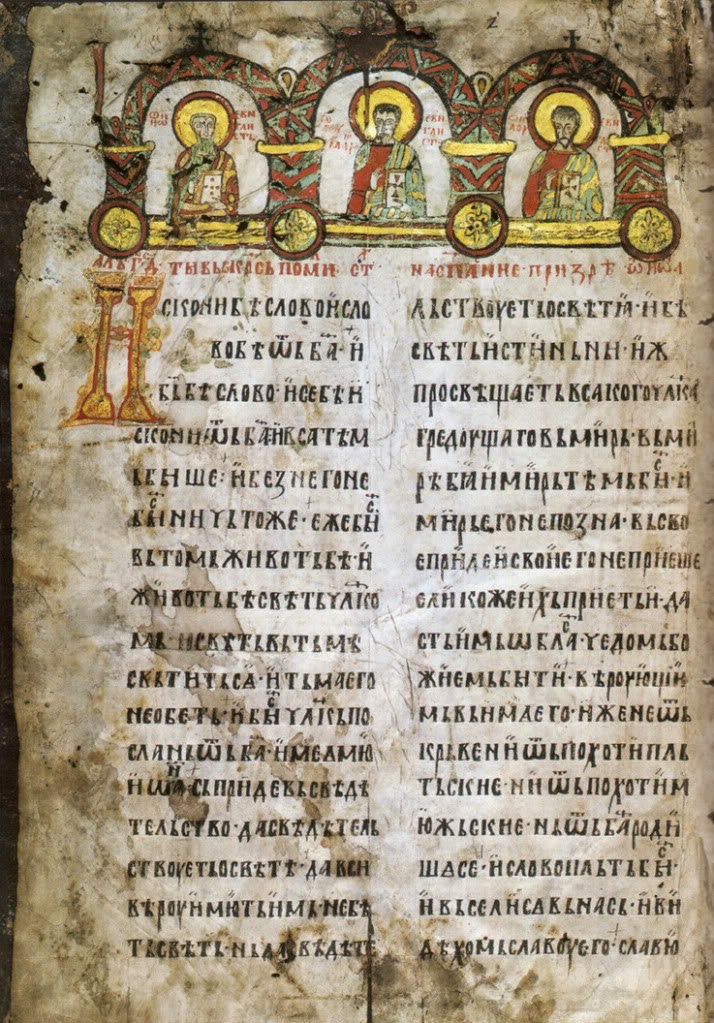 сконибѣсловоисло
вобѣѿьба҃·и
бь҃бѣслово·исебѣи
скониѿьба҃·ивсатѣм
ьбыше:ибезнегоне
бы҇ничьтоже·ежебы҇
вьтомьживотьбѣ·и
животьбѣсвѣтьчл҃ко
мь·исвѣтьвьтьмѣ
свьтитьсѧ·итьмаего
необеть·ибы҇чл҃кьпо
сланьѿьба҃·имеѥмю
иѡа҃·сьпридевьсвѣдѣ
тельство·дасвѣдѣтель
ствоуѥтьосвѣтѣ·давси
вѣроуимютьимь·небѣ
тьсвѣть·ньдасвѣдѣте
льствоуѥтьосвѣтѣ·ибѣ
свѣтьистиньни·иж
просвѣщаѥтьвсакогочл҃ка
гредоущаговьмирь·вьми
рѣбѣ·имирьтѣмьбы҇·и
мирьѥгонепозна·вьсво
ѥприде·исвоиѥгонеприѥше
ѥликожеихьприѥтьи·да
стьимьѡбла҇·чедомьбо
жиемьбыти·вѣроующи
мьвьимаѥго·иженеѿь
крьвениѿьпохотипль
тьскиѥ·ниѿьпохотим
южьскиѥ·ньѿьба҃роди
шѧсе·исловопльтьбы҇·
ивьселисѧвьнась·иви
дѣхомьславоуѥго·славю